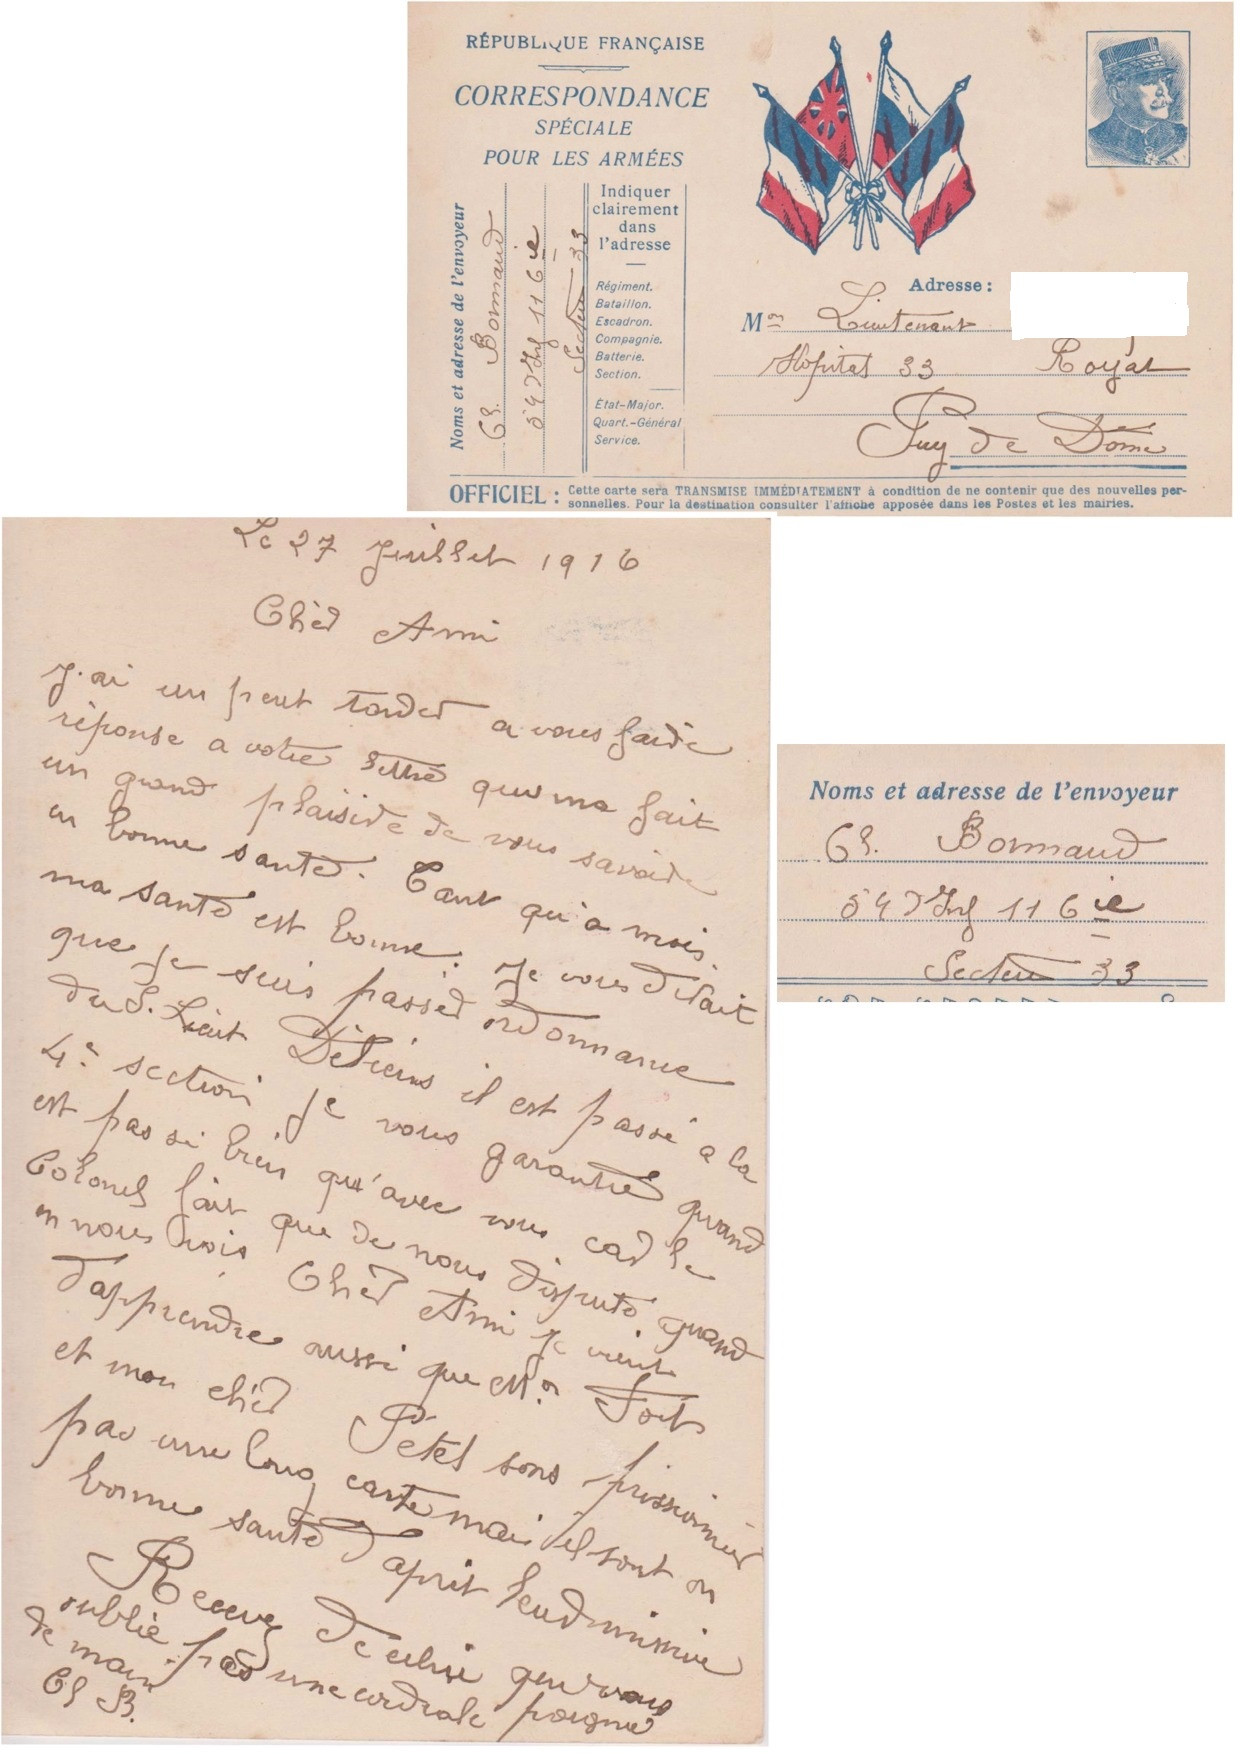 RÉPUBLIQUE FRANÇAISE
CORRESPONDANCE
SPÉCIALE
POUR LES ARMÉES
Noms et adresse de l'envoyeur
Ch. Bonnaud
54 d'Inf 11 6 ie
Secteur 33
Indiquer
clairement
dans
l'adresse
Régiment.
Bataillon.
Escadron.
Compagnie.
Batterie.
Section.
État-Major.
Quart.-Général
Service.
Adresse :
Mr Lieutenant
Hopital 33 Royat
Puy de Dôme
OFFICIEL : Cette carte sera TRANSMISE IMMÉDIATEMENT à condition de ne contenir que des nouvelles per-
sonnelles. Pour la destination consulter l'affiche apposée dans les Postes et les mairies.
Le 27 Juillet 1916
Chèr Ami
J'ai un peut tarder a vous faire
réponse a votre lettre qui ma fait
un grand plaisire de vous savoire
en bonne santé. Tant qu'a mois
ma santé est bonne. Je vous dirait
que je suis passer ordonnance
du S. Lieut il est passé a la
4e section je vous garantie quand
est pas si bien qu'avec vous car le
Colonel fait que de nous disputé quand
en nous vois Chèr Ami je vient
d'apprendre aussi que Mr Fort
et mon chèr Petel sons prissonnier
pas une long carte mai il sont en
bonne santé d'aprit
Recevez de celui qui vous
oublie pas une cordiale poigné
de main
Ch B.
Noms et adresse de l'envoyeur
Ch. Bonnaud
54 d'Inf 11 6 ie
Secteur 33